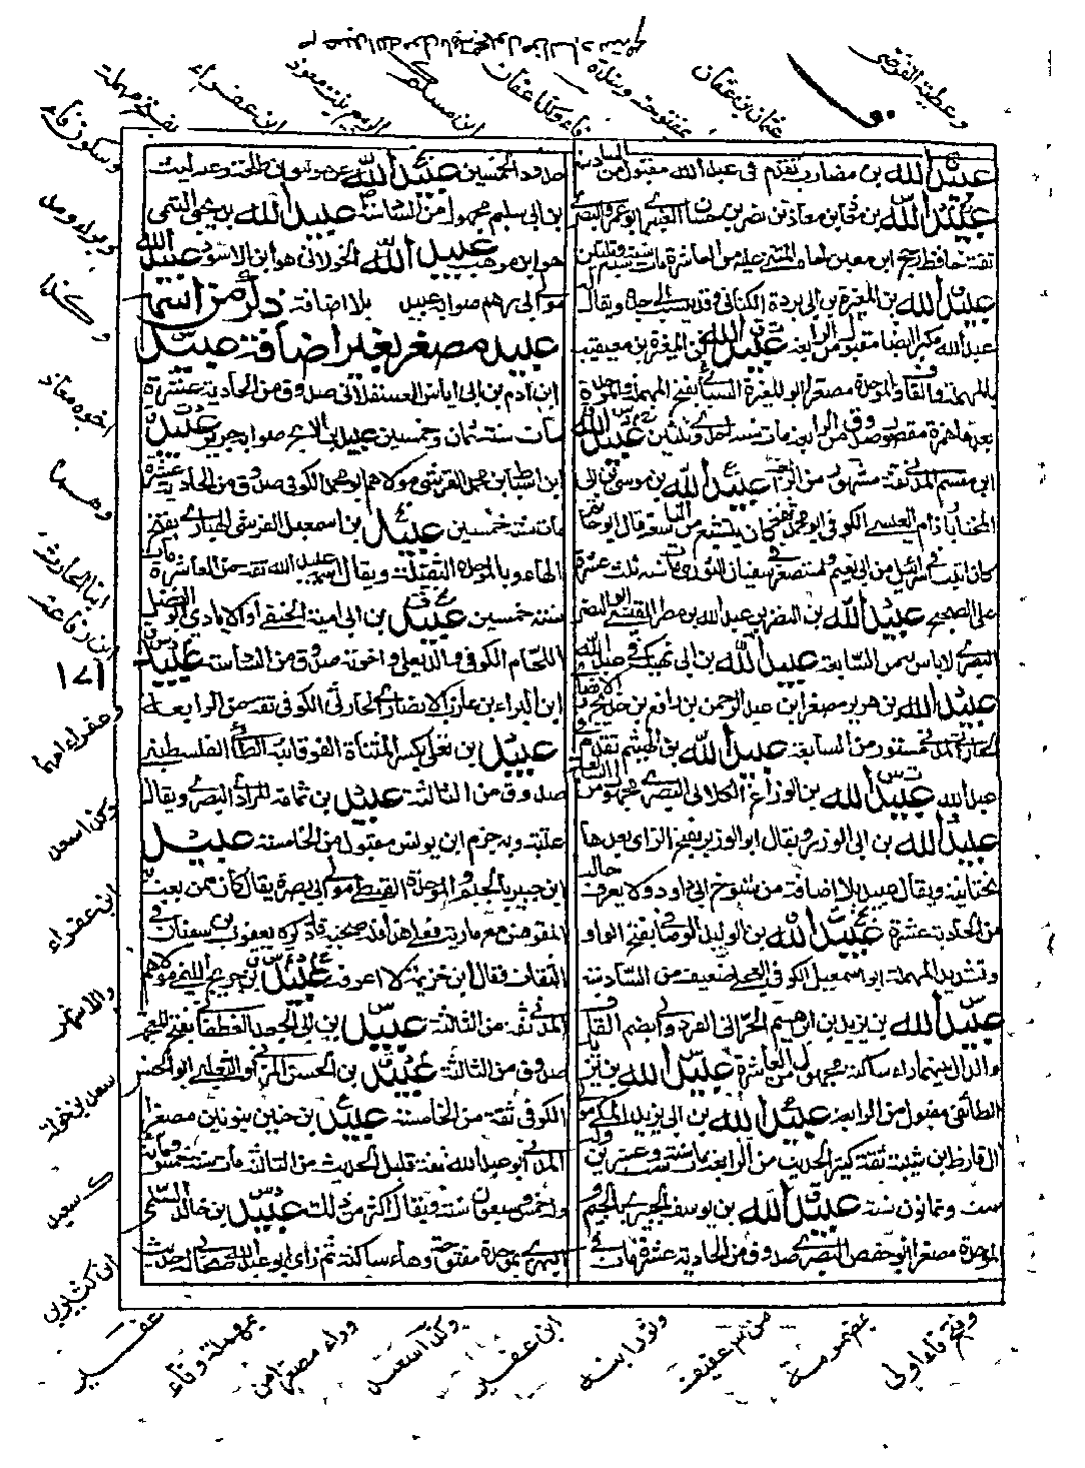 عبيد الله بن مضارب تقدم في عبد الله مقبول من السادسة
عبيد الله بن معاذ بن معاذ بن نصر بن حسان العنبري ابو عمرو البصري
ثقة حافظ رجح ابن معين اخاه المثنى عليه من العاشرة مات سنة سبع وثلثين
عبيد الله بن المغيرة بن ابي بردة الكناني وقد ينسب الى جده ويقال له
عبد الله مكبر ايضا مقبول من الرابعة عبيد الله بن المغيرة بن معيقيب
بالمهملة والقاف والموحدة مصغر ابو المغيرة السبائي بفتح المهملة والموحدة
بعدها همزة مقصور صدوق من الرابعة مات سنة احدى وثلثين عبيد الله
ابن مقسم المدني ثقة مشهور من الرابعة عبيد الله بن موسى بن ابي
المختار باذام العبسي الكوفي ابو محمد ثقة كان يتشيع من التاسعة قال ابو حاتم
كان اثبت في اسرائيل من ابي نعيم واستصغر في سفيان الثوري مات سنة ثلث عشرة
على الصحيح عبيد الله بن النضر بن عبد الله بن مطر القيسي ابو النضر
البصري لا باس به من السابعة عبيد الله بن ابي نهيك في عبد الله
عبيد الله بن هرير مصغر ابن عبد الرحمن بن رافع بن خديج الانصاري
الحارثي المدني مستور من السابعة عبيد الله بن الهيثم تقدم في
عبد الله عبيد الله بن الوازع الكلابي البصري مجهول من السابعة
عبيد الله بن ابي الوزير ويقال ابو الوزير بفتح الزاي بعدها
تحتانية ويقال عبيد بلا اضافة من شيوخ ابي داود لا يعرف حاله
من الحادية عشرة عبيد الله بن الوليد الوصافي بفتح الواو
وتشديد المهملة ابو اسمعيل الكوفي العجلي ضعيف من السادسة
عبيد الله بن يزيد بن ابراهيم الحراني القردواني بضم القاف
والدال بينهما راء ساكنة مجهول من العاشرة عبيد الله بن يزيد
الطائفي مقبول من الرابعة عبيد الله بن ابي يزيد المكي مولى
ال قارظ ابن شيبة ثقة كثير الحديث من الرابعة مات سنة ست وعشرين وله
ست وثمانون سنة عبيد الله بن يوسف الجبيري بالجيم
والموحدة مصغر ابو حفص البصري صدوق من الحادية عشرة مات في
حدود الخمسين عبيد الله عن موسى بن طلحة وعنه ليث
ابن ابي سليم مجهول من السادسة عبيد الله بن يحيى التيمي
هو ابن موهب عبيد الله الخولاني هو ابن الاسود عبيد الله
مولى ابي رهم صوابه عبيد بلا اضافة ذكر من اسمه
عبيد مصغر بغير اضافة عبيد
ابن ادم بن ابي اياس العسقلاني صدوق من الحادية عشرة
مات سنة ثمان وخمسين عبيد بن الابح صوابه جرير عبيد
ابن اسباط بن محمد القرشي مولاهم ابو محمد الكوفي صدوق من الحادية عشرة
مات سنة خمسين عبيد بن اسمعيل القرشي الهباري بفتح
الهاء وبالموحدة الثقيلة ويقال اسمه عبيد الله ثقة من العاشرة مات
سنة خمسين عبيد بن ابي امية الحنفي او الايادي ابو الفضل
اللحام الكوفي والد يعلى واخوته صدوق من السادسة عبيد
ابن البراء بن عازب الانصاري الحارثي الكوفي ثقة من الرابعة
عبيد بن تعلى بكسر المثناة الفوقانية الطائي الفلسطيني
صدوق من الثالثة عبيد بن ثمامة المرادي البصري ويقال
عتبة وبه جزم ابن يونس مقبول من الخامسة عبيد
ابن جبير بالجيم والموحدة القبطي مولى ابي بصرة يقال كان ممن بعث به
المقوقس مع مارية فعلى هذا فله صحبة وقد ذكره يعقوب بن سفيان في
الثقات فقال ابن خزيمة لا اعرفه عبيد بن جريج التيمي مولاهم
المدني ثقة من الثالثة عبيد بن ابي الجعد الغطفاني بفتح المعجمة
صدوق من الثالثة عبيد بن الحسن المزني او الثعلبي ابو الحسن
الكوفي ثقة من الخامسة عبيد بن حنين بنونين مصغرا
المدني ابو عبد الله ثقة قليل الحديث من الثالثة مات سنة خمس ومائة
وله خمس وسبعون سنة ويقال اكثر من ذلك عبيد بن خالد السلمي
البهزي بموحدة مفتوحة وهاء ساكنة ثم زاي ابو عبد الله صحابي له حديث
وعطية القرضي
عثمان بن عفان
مفتوحة ومثلاة
فاء وكذا عفان
ابن مسلم
الربيع بنت معوذ
ابن عفراء
بفتح مهملة
وسكون فاء
وبراء ومد
وكذا
اخوه معاذ
وهما
ابنا الحارث
ابن رفاعة
١٧١
وعفراء امهما
وكذا اسعد
ابن عفراء
والاشهر
سعد بن خولة
كسعيد
ابن كثير بن
عفير
بمهملة وفاء
وراء مصغرا من
وكذا سعيد
ابن عفير
ونور ابنه
من عقيقة
بضمومة
وفتح فاء اولى